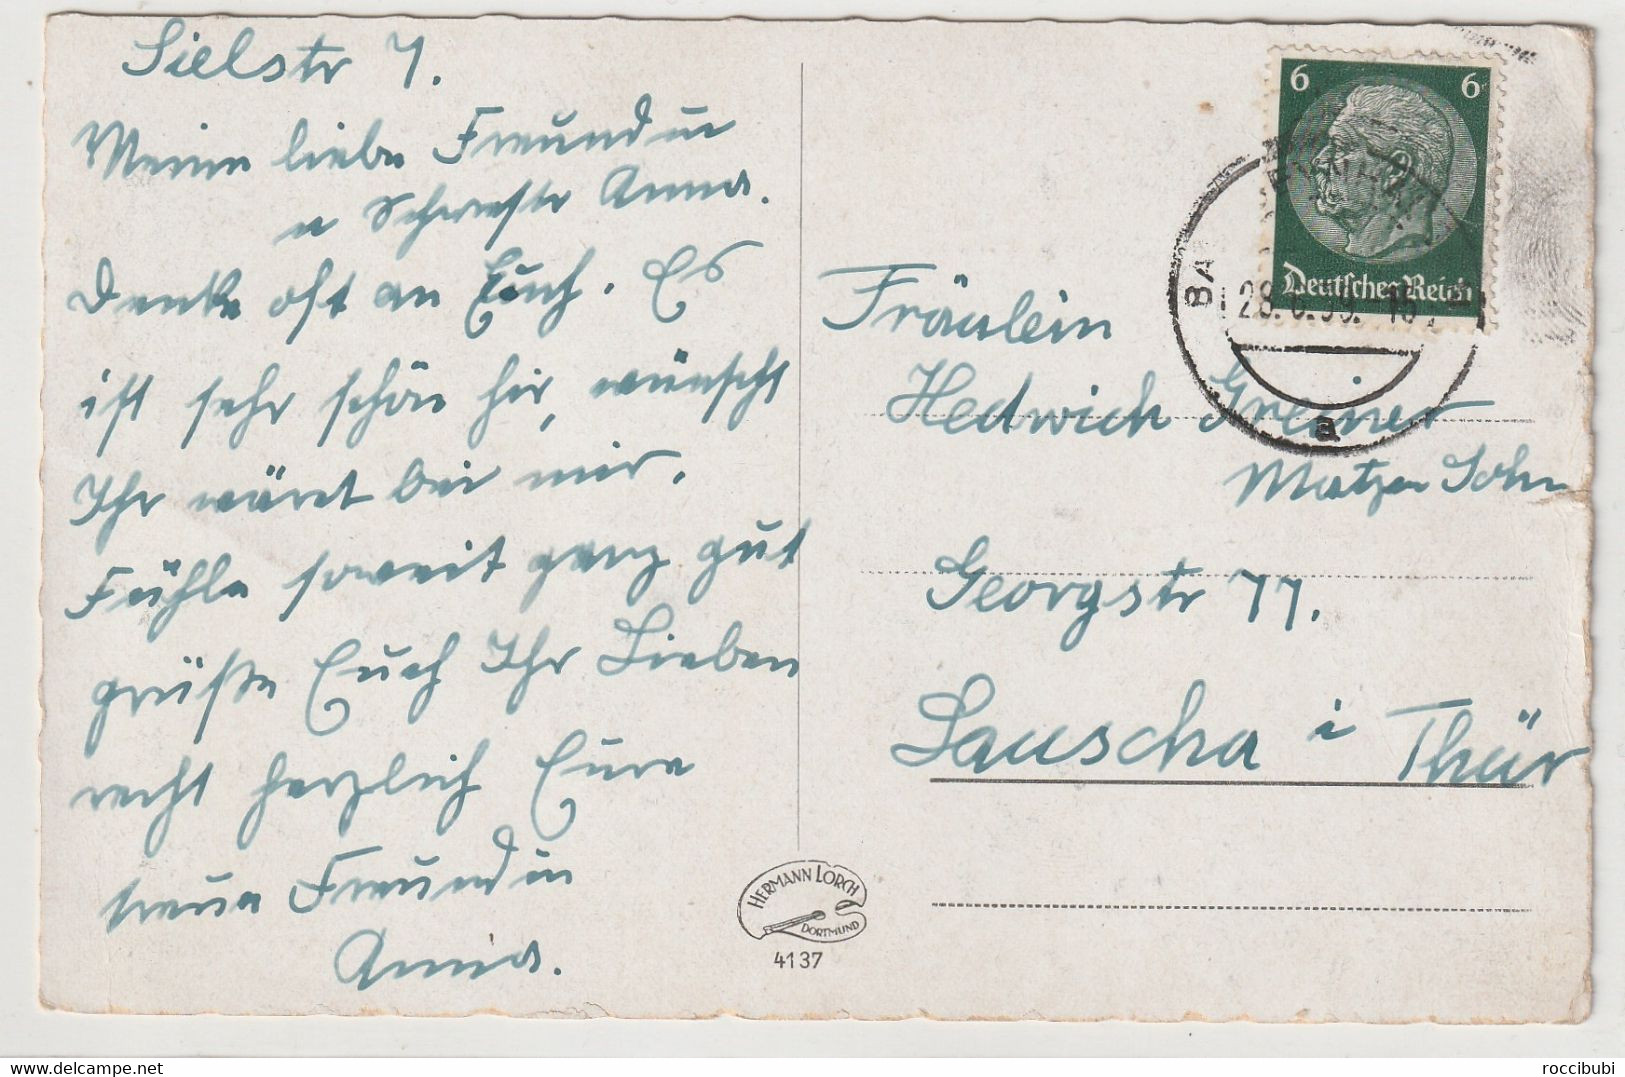 Sielstr 7.
Meine liebe Freundin
u Schwester Anna.
Denke oft an Euch. Es
ist sehr schön hir, wünscht
Ihr wäret bei mir.
Fühle soweit ganz gut
grüße Euch Ihr Lieben
recht herzlich Eure
treue Freundin
Anna.
6 6
Deutsches Reich
BA
28.6.39. 
a
Fräulein
Hedwich Greiner
Matzen Sohn
Georgstr 77.
Lauscha i Thür
HERMANN LORCH
DORTMUND
4137
roccibubi